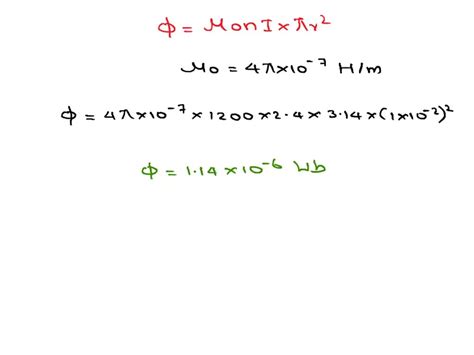 ϕ = μonI×πr²
μo = 4π×10⁻⁷ H/m
ϕ = 4π×10⁻⁷ × 1200×2.4×3.14×(1×10⁻²)²
ϕ = 1.14×10⁻⁶ Wb